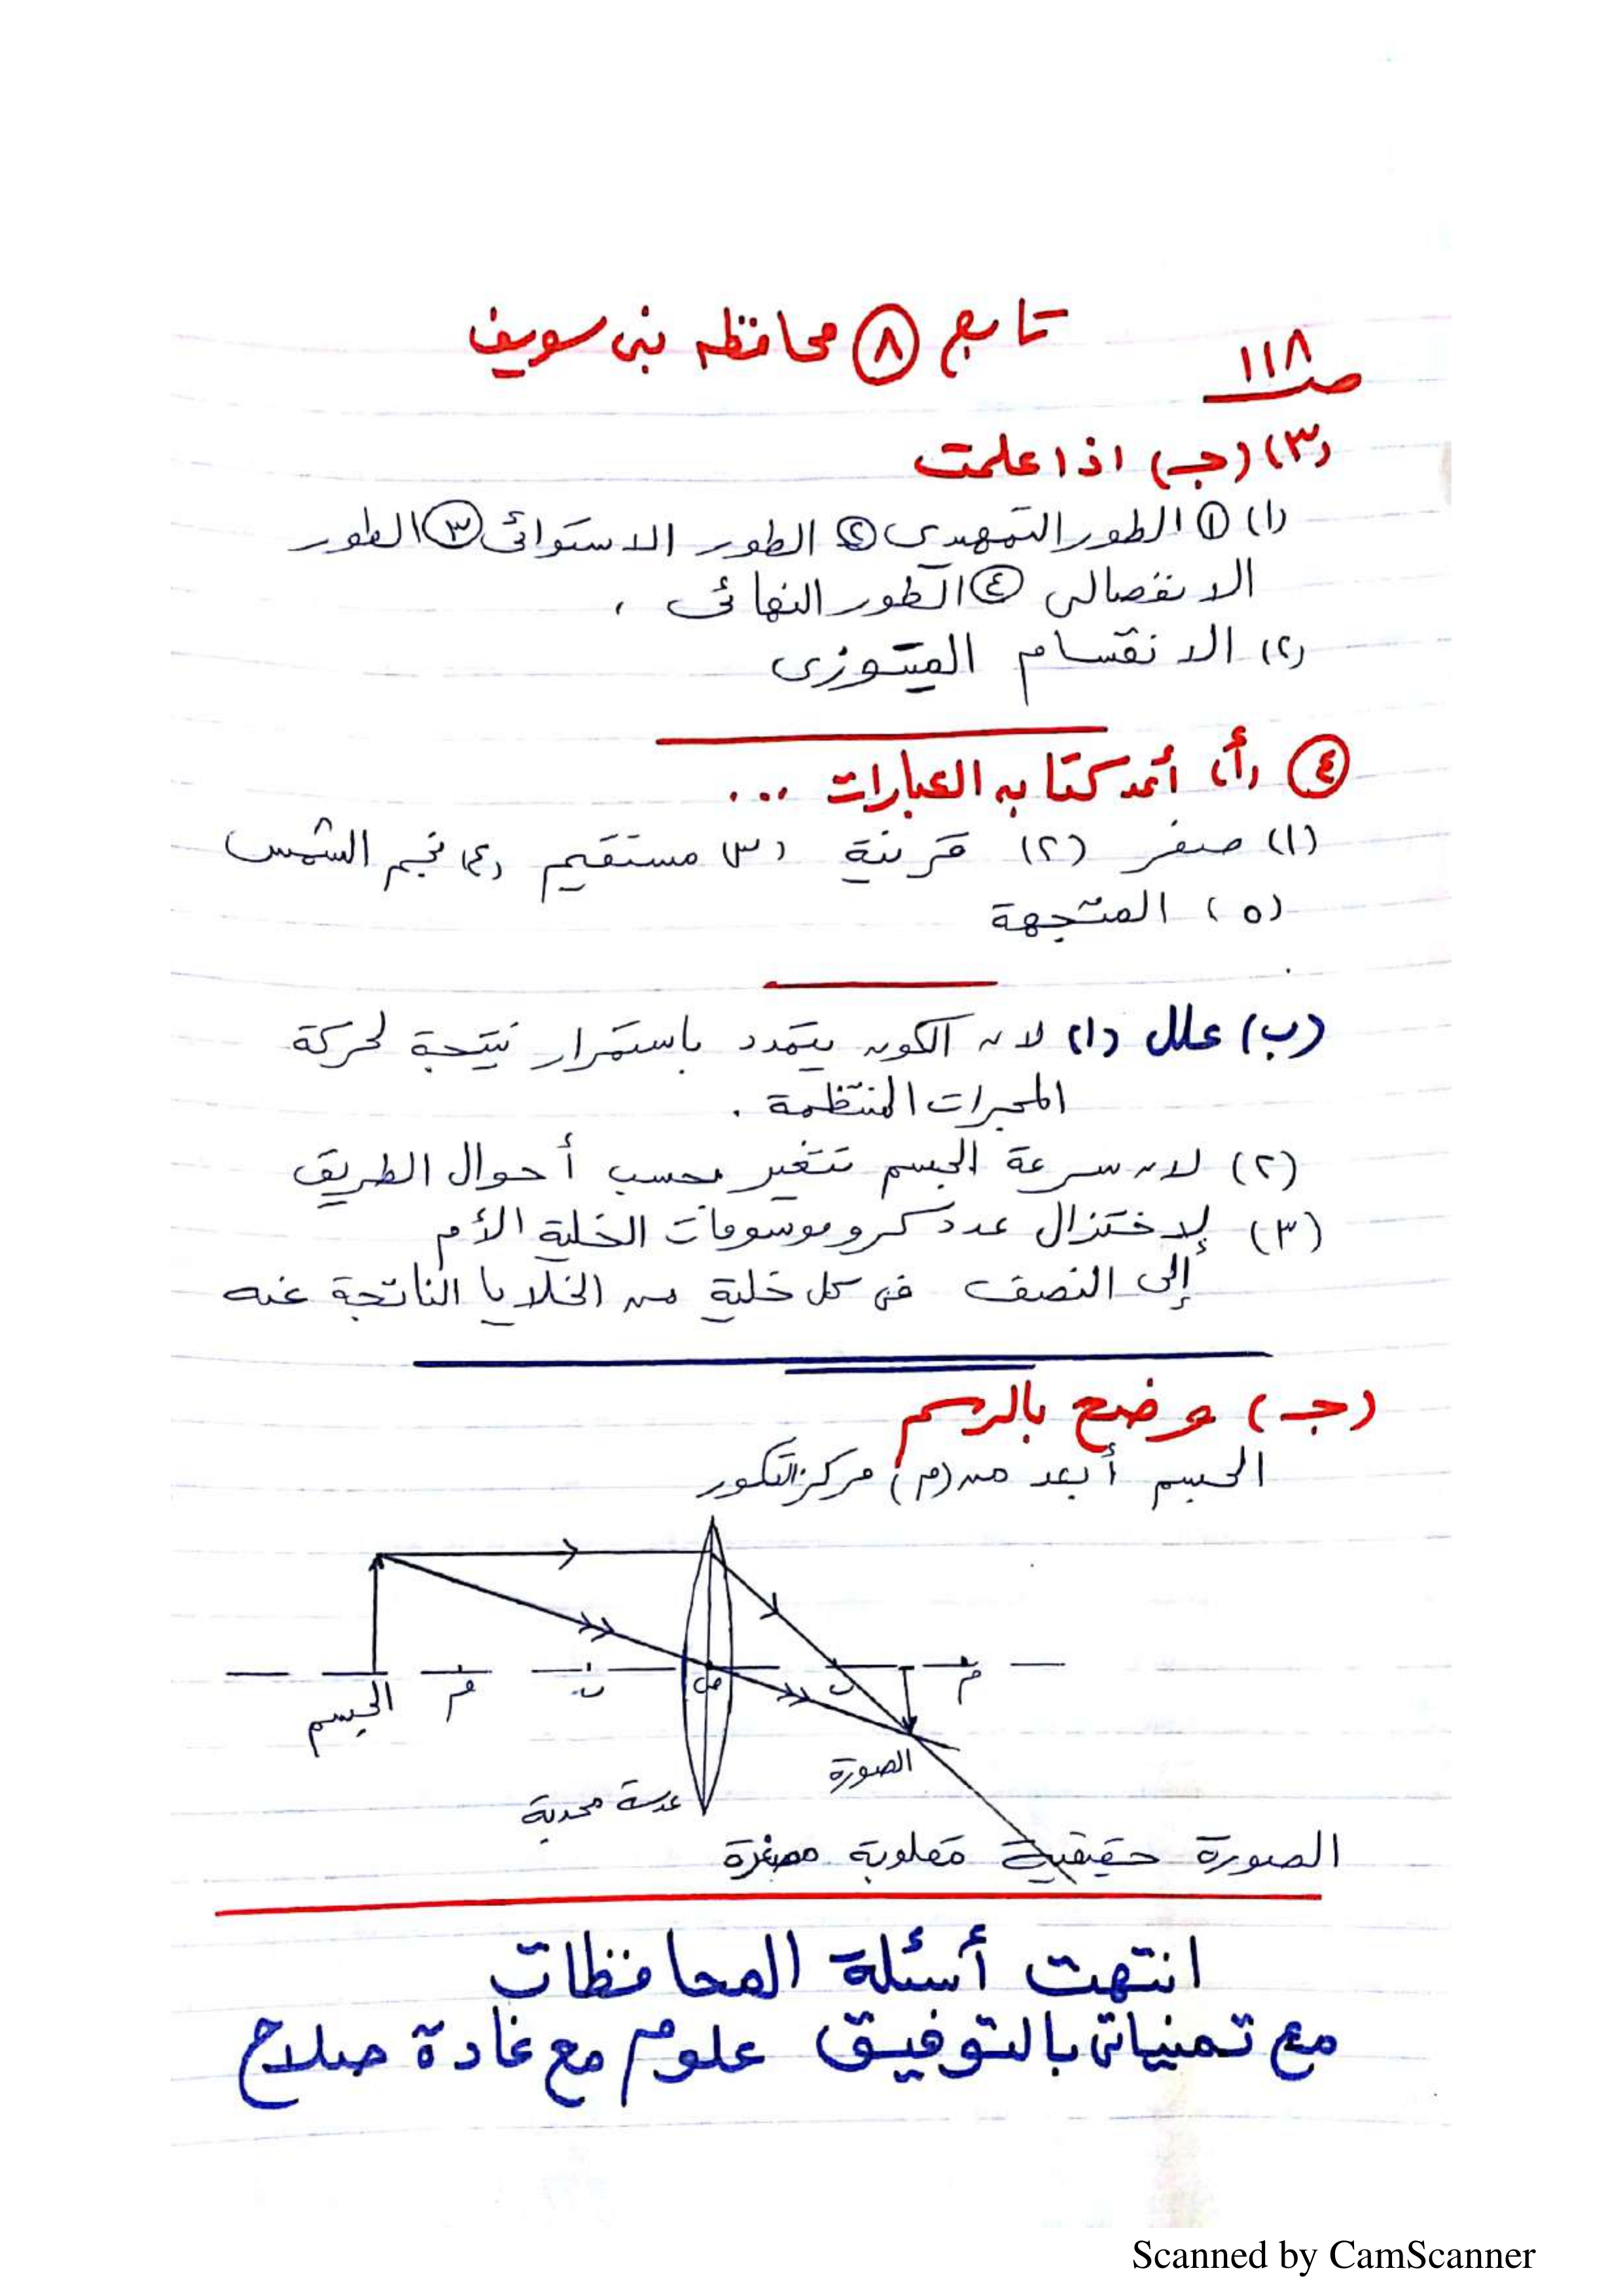 تابع ٨ محافظه بنى سويف
صـ ١١٨
(٣) (جـ) اذا علمت
(١) ① الطور التمهيدى ② الطور الاستوائى ③ الطور
الانفصالى ④ الطور النهائى .
(٢) الانقسام الميتوزى
④ (أ) أعد كتابه العبارات ...
(١) صفر (٢) قرنية (٣) مستقيم (٤) نجم الشمس
(٥) المتجهة
(ب) علل (١) لان الكون يتمدد باستمرار نتيجة لحركة
المجرات المنتظمة .
(٢) لان سرعة الجسم تتغير بحسب أحوال الطريق
(٣) لإختزال عدد كروموسومات الخلية الأم
إلى النصف فى كل خلية من الخلايا الناتجة عنه
(جـ) وضح بالرسم
الجسم أبعد من (م) مركز التكور
الجسم م ب ص ب م
الصورة
عدسة محدبة
الصورة حقيقية مقلوبة مصغرة
انتهت أسئلة المحافظات
مع تمنياتى بالتوفيق علوم مع غادة صلاح
Scanned by CamScanner